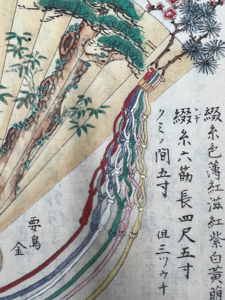 綴糸色薄紅滋紅紫白黄萌
トヂ
綴糸六筋長四尺五寸
クミノ間五寸
但三ツウチ
要鳥
金